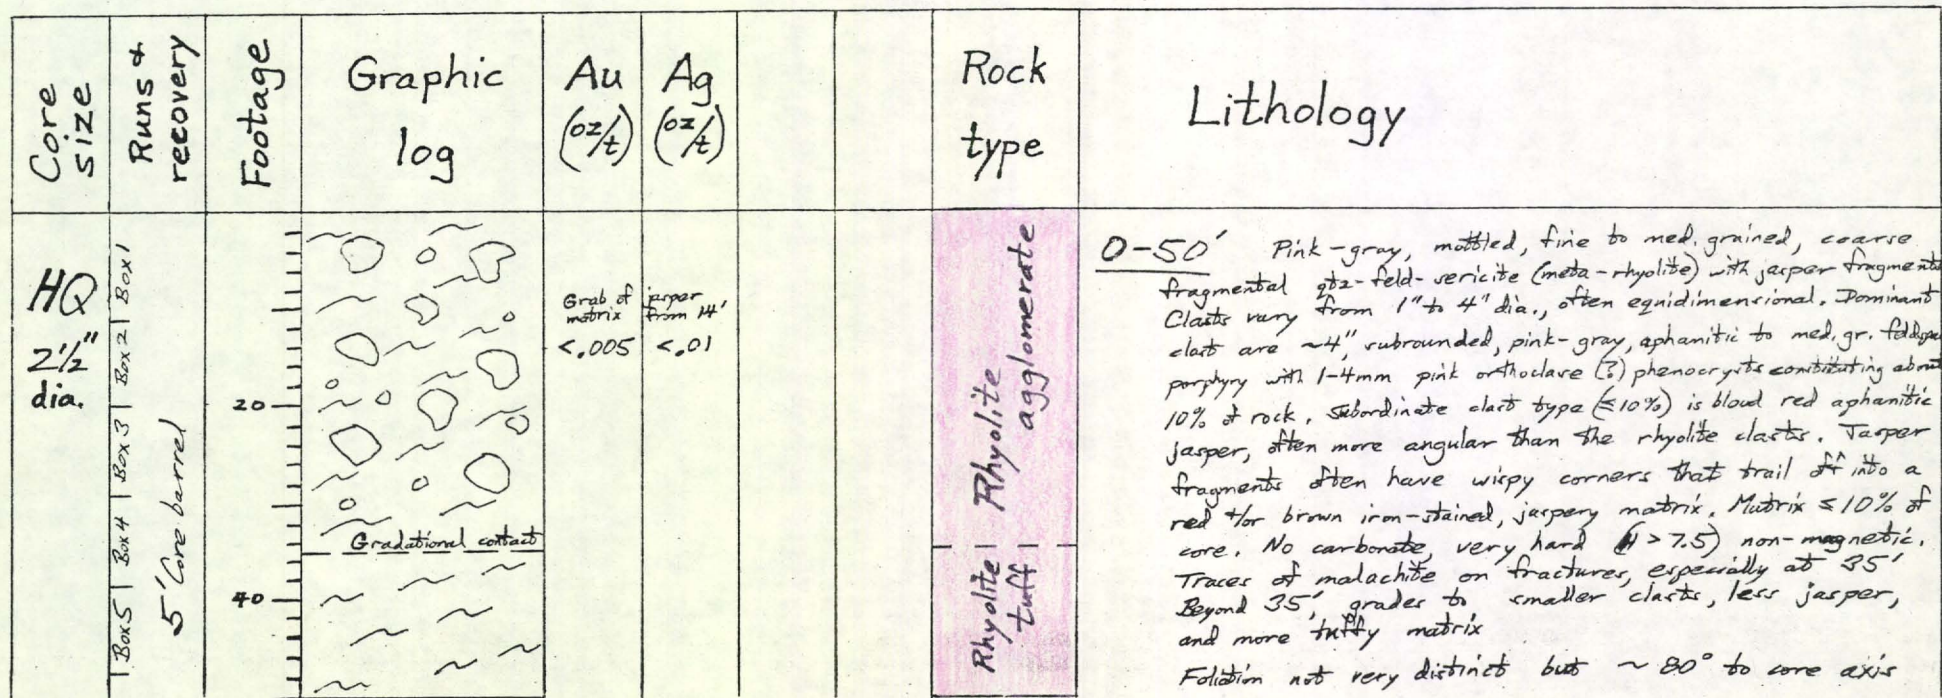 Core size
Runs & recovery
Footage
Graphic log
Au (oz/t)
Ag (oz/t)
Rock type
Lithology
HQ
2½"
dia.
Box 1
Box 2
Box 3
Box 4
Box 5
5' Core barrel
20
40
Gradational contact
Grab of jasper
matrix from 14'
<.005 <.01
Rhyolite agglomerate
Rhyolite tuff
0-50' Pink-gray, mottled, fine to med. grained, coarse
fragmental qtz-feld-sericite (meta-rhyolite) with jasper fragments
Clasts vary from 1" to 4" dia., often equidimensional. Dominant
clast are ~4", subrounded, pink-gray, aphanitic to med. gr.
porphyry with 1-4mm pink orthoclase (?) phenocrysts constituting about
10% of rock. Subordinate clast type (≤10%) is blood red aphanitic
jasper, often more angular than the rhyolite clasts. Jasper
fragments often have wispy corners that trail off into a
red +/or brown iron-stained, jaspery matrix. Matrix ≤10% of
core. No carbonate, very hard (H > 7.5) non-magnetic.
Traces of malachite on fractures, especially at 35'
Beyond 35', grades to smaller clasts, less jasper,
and more tuffy matrix
Foliation not very distinct but ~80° to core axis